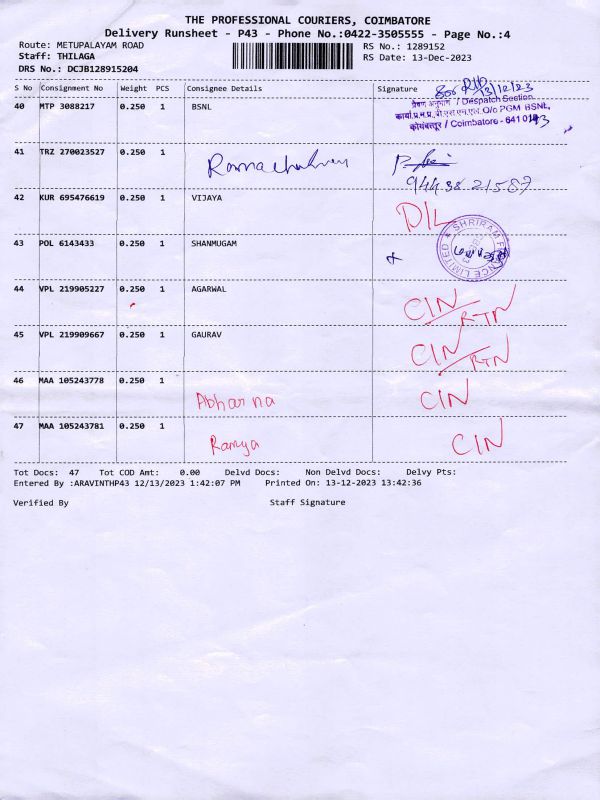 THE PROFESSIONAL COURIERS, COIMBATORE
Delivery Runsheet - P43 - Phone No.:0422-3505555 - Page No.:4
Route: METUPALAYAM ROAD RS No.: 1289152
Staff: THILAGA RS Date: 13-Dec-2023
DRS No.: DCJB128915204
S No Consignment No Weight PCS Consignee Details Signature
13/12/23
40 MTP 3088217 0.250 1 BSNL
प्रेषण अनुभाग / Despatch Section
O/o PGM BSNL,
कोयंबत्तूर / Coimbatore - 641 043
41 TRZ 270023527 0.250 1 Ramachandran
94438 21587
42 KUR 695476619 0.250 1 VIJAYA D/L
43 POL 6143433 0.250 1 SHANMUGAM
SHRIRAM FINANCE LIMITED
44 VPL 219905227 0.250 1 AGARWAL CIN/RTN
45 VPL 219909667 0.250 1 GAURAV CIN/RTN
46 MAA 105243778 0.250 1 Abharna CIN
47 MAA 105243781 0.250 1 Ramya CIN
Tot Docs: 47 Tot COD Amt: 0.00 Delvd Docs: Non Delvd Docs: Delvy Pts:
Entered By :ARAVINTHP43 12/13/2023 1:42:07 PM Printed On: 13-12-2023 13:42:36
Verified By Staff Signature